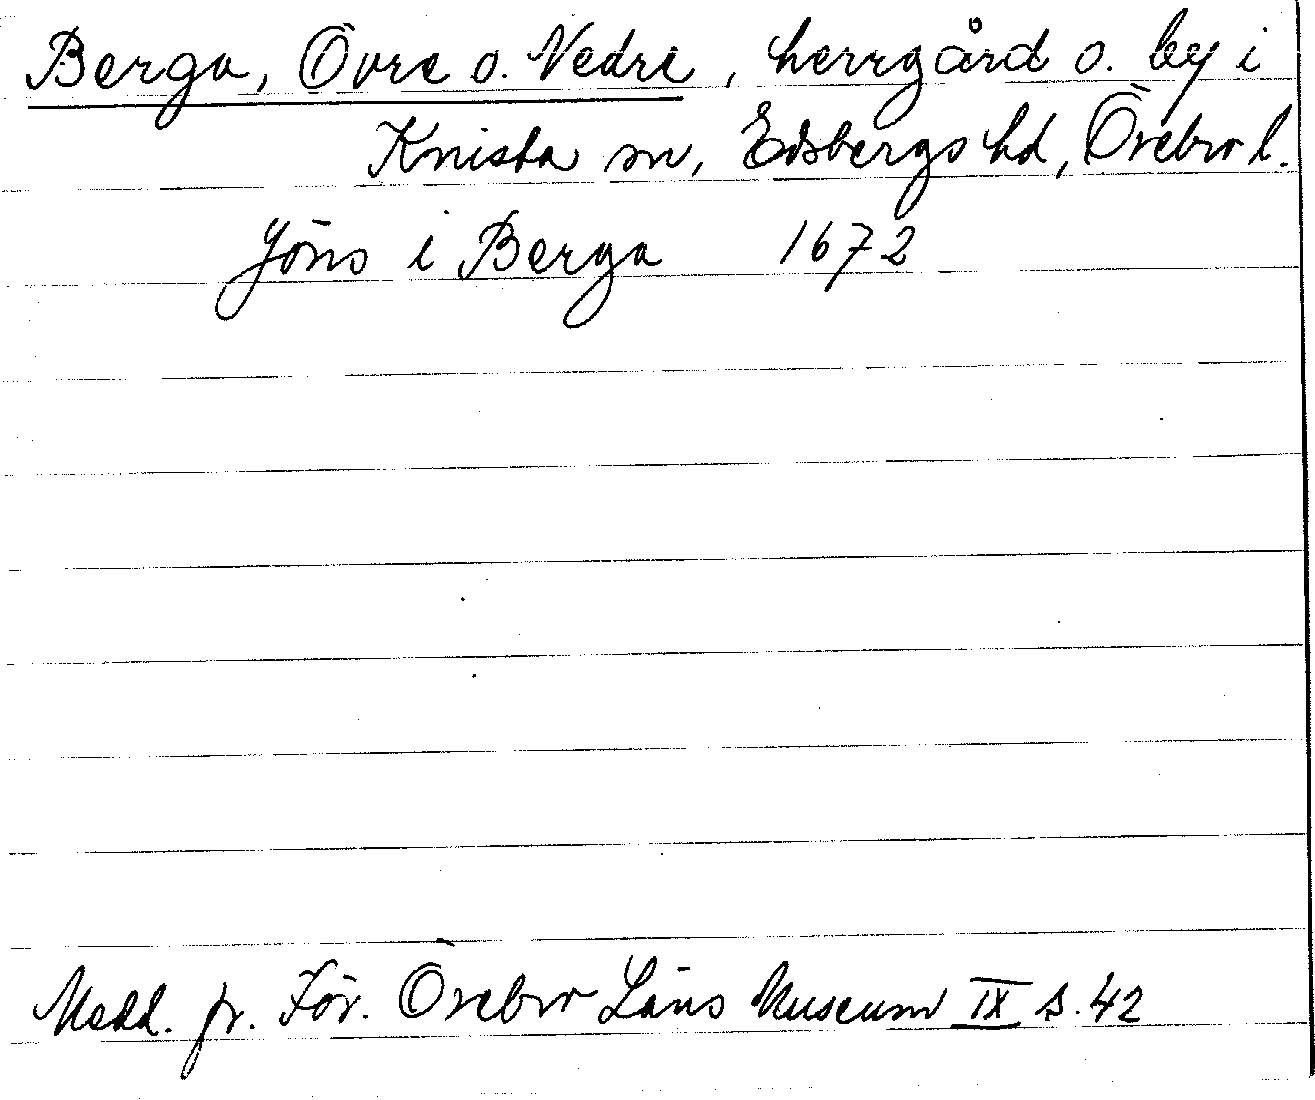 Berga, Övre o. Nedre, herrgård o. by i
Knista sn, Edsbergs hd, Örebro l.
Jöns i Berga 1672
Medd. fr. För. Örebro Läns Museum IX s. 42